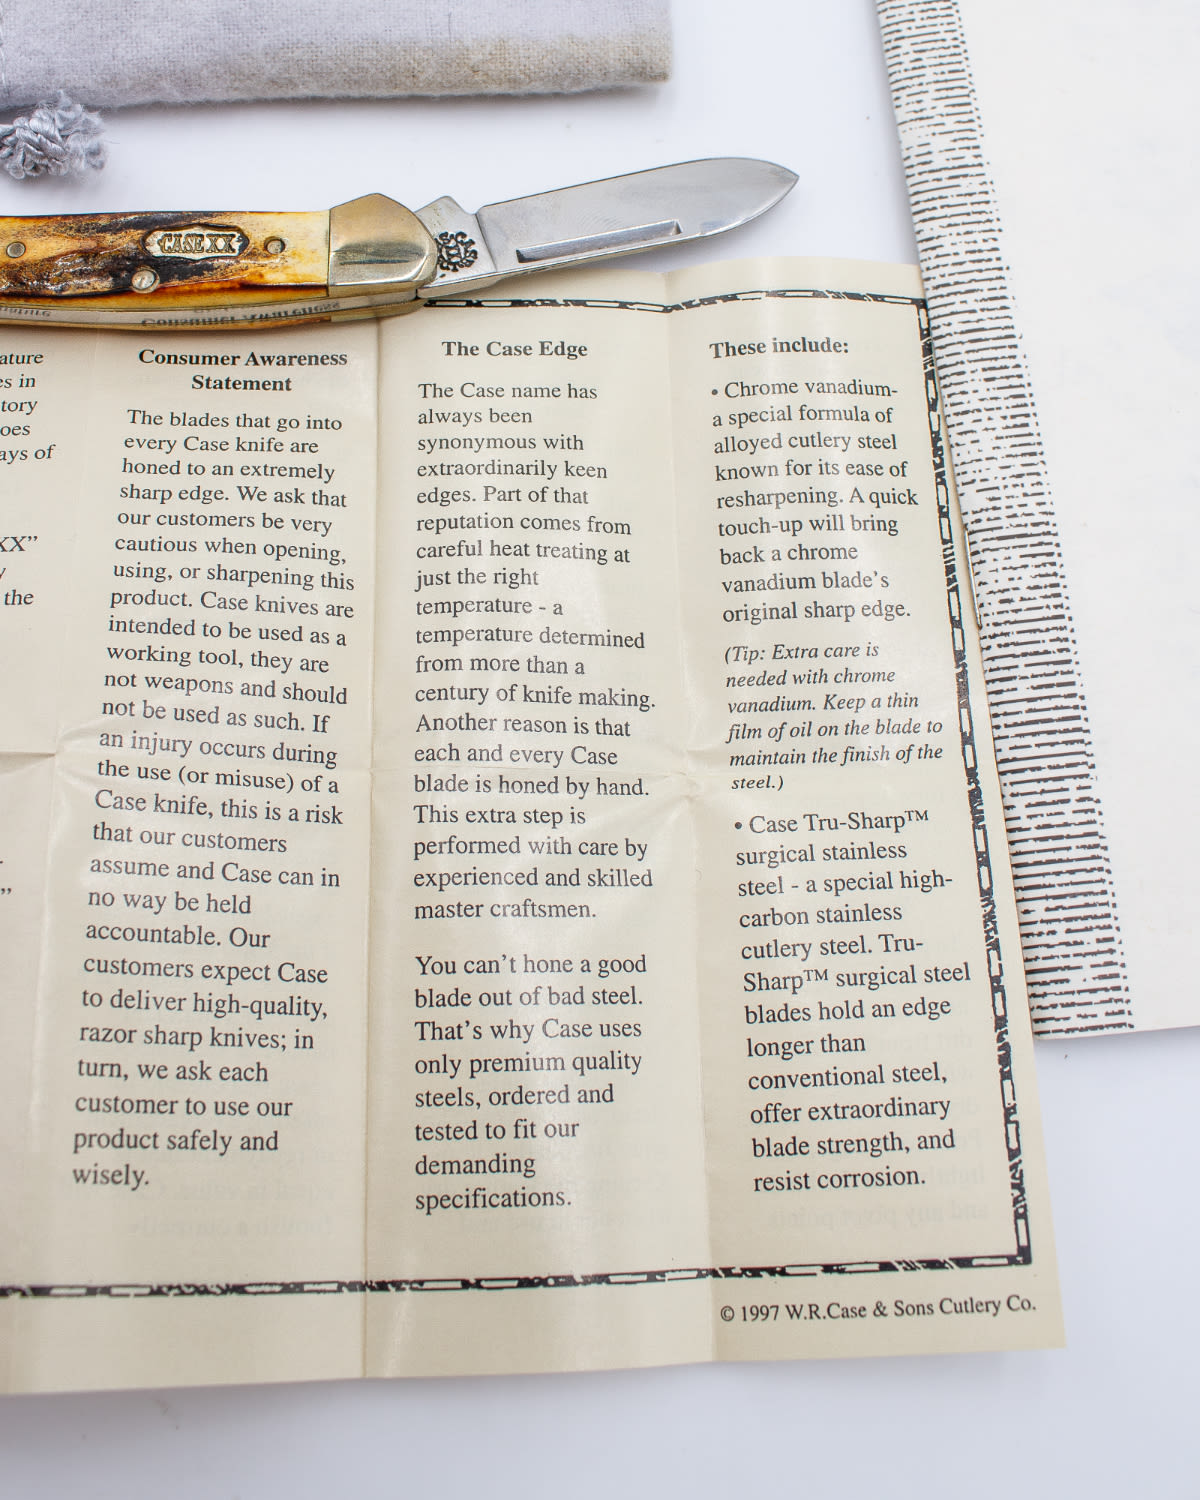 CASE XX
CASE
ature
es in
tory
oes
ays of
XX”
y
the
”
Consumer Awareness
Statement
The blades that go into
every Case knife are
honed to an extremely
sharp edge. We ask that
our customers be very
cautious when opening,
using, or sharpening this
product. Case knives are
intended to be used as a
working tool, they are
not weapons and should
not be used as such. If
an injury occurs during
the use (or misuse) of a
Case knife, this is a risk
that our customers
assume and Case can in
no way be held
accountable. Our
customers expect Case
to deliver high-quality,
razor sharp knives; in
turn, we ask each
customer to use our
product safely and
wisely.
The Case Edge
The Case name has
always been
synonymous with
extraordinarily keen
edges. Part of that
reputation comes from
careful heat treating at
just the right
temperature - a
temperature determined
from more than a
century of knife making.
Another reason is that
each and every Case
blade is honed by hand.
This extra step is
performed with care by
experienced and skilled
master craftsmen.
You can’t hone a good
blade out of bad steel.
That’s why Case uses
only premium quality
steels, ordered and
tested to fit our
demanding
specifications.
These include:
• Chrome vanadium-
a special formula of
alloyed cutlery steel
known for its ease of
resharpening. A quick
touch-up will bring
back a chrome
vanadium blade’s
original sharp edge.
(Tip: Extra care is
needed with chrome
vanadium. Keep a thin
film of oil on the blade to
maintain the finish of the
steel.)
• Case Tru-Sharp™
surgical stainless
steel - a special high-
carbon stainless
cutlery steel. Tru-
Sharp™ surgical steel
blades hold an edge
longer than
conventional steel,
offer extraordinary
blade strength, and
resist corrosion.
© 1997 W.R.Case & Sons Cutlery Co.